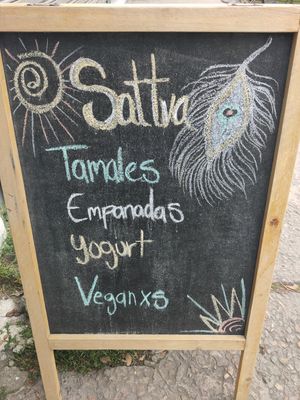 Sattva
Tamales
Empanadas
yogurt
Veganxs